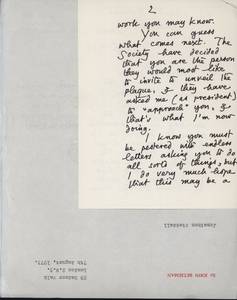 2
work you may know.
You can guess
what comes next. The
Society have decided
that you are the person
they would most like
to invite to unveil the
plaque, & they have
asked me (as president)
to "approach" you, &
that's what I'm now
doing.
I know you must
be pestered with endless
letters asking you to do
all sorts of things, but
I do very much hope
that this may be a
Jonathan
29 Radnor Walk
London S.W.3.
7th August, 1973.
Sir JOHN BETJEMAN